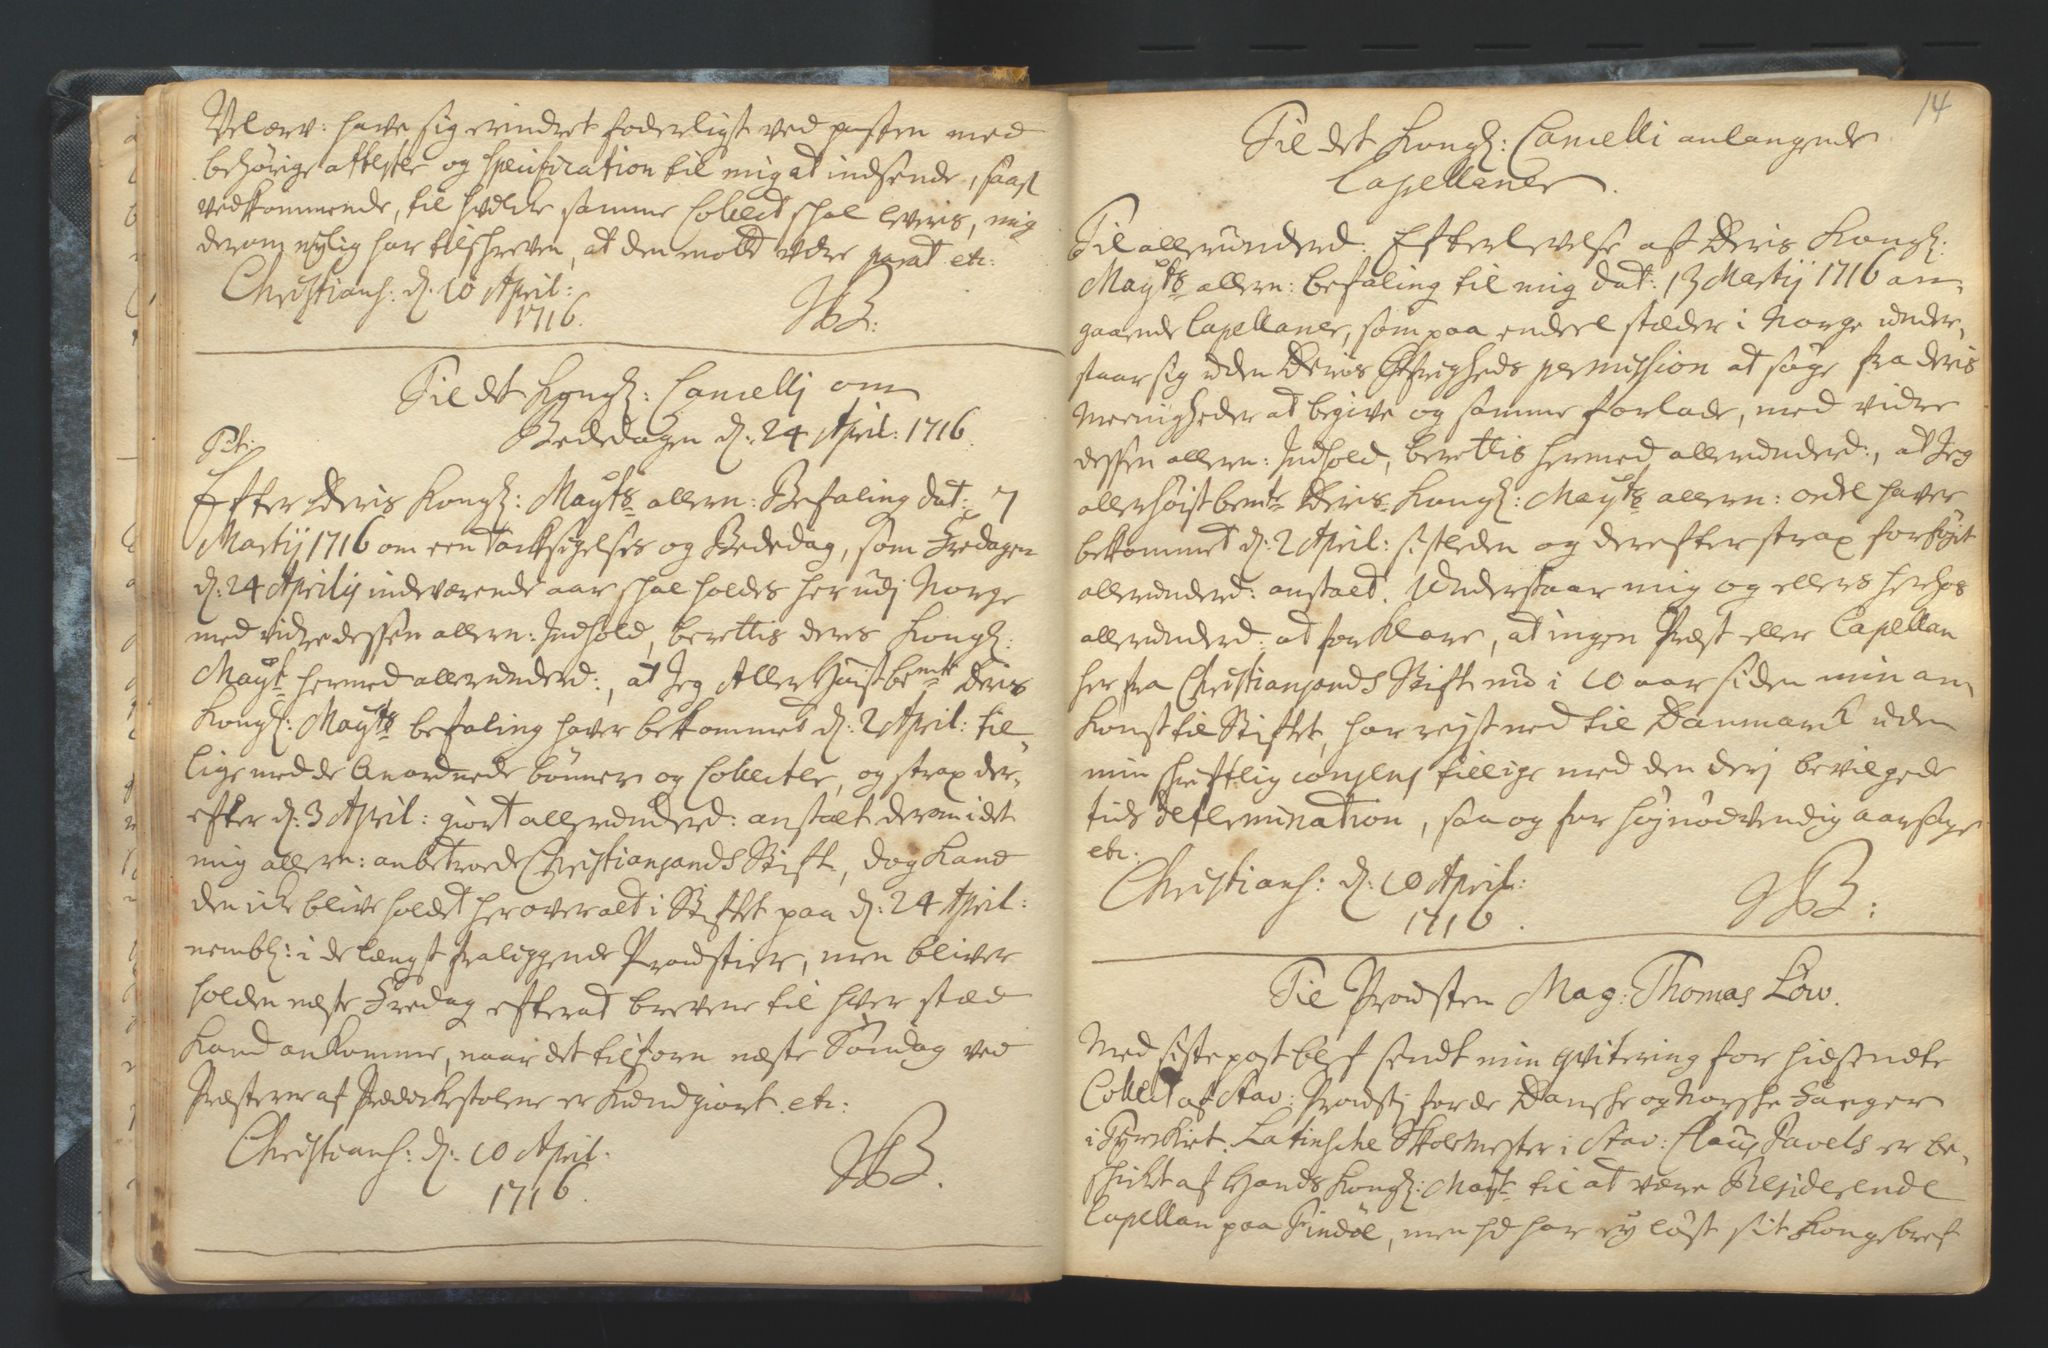 Velærv: have sig erindret foderligst ved posten med
behørige atteste og specification til mig at indsende, saasl
vedkommende, til hvilke samme Collect skal leveris, mig
derom nylig har tilschreven, at den motte være parat etc:
Christians: d. 10 April:
1716.
JBB:
Til det Kongl: Cancellj om
Bededagen d: 24 April: 1716.
Pt:
Efter Deris Kongl: Mayts allern: Befaling dat: 7
Martij 1716 om een Tacksigelses og Bededag, som Fredagen
d: 24 Aprilij indeværende aar skal holdes her udj Norge
med vidre dessen allern: Indhold, berettis deres Kongl:
Mayt hermed allerunderd:, at Jeg Allerhøistbemte Deris
Kongl: Mayts befaling haver bekommet d: 2 April: til
lige med de Anordnede bønner og Collecter, og strax der,
efter d: 3 April: giort allerunderd: anstalt derom i det
mig allern: anbetroede Christiansands Stift, dog kand
den icke blive holdet her over alt i Stiftet paa d: 24 April:
nembl: i de længst fraliggende Provstier, men bliver
holden næste Fredag efter at brevene til hver stæd
kand ankomme, naar det tilforn næste Søndag ved
Præsterne af Prædickestolene er kundgiort. etc:
Christians: d: 10 April:
1716.
JBB.
14
Til det Kongl: Cancelli anlangende
Capellaner.
Til allerunderd: Efterlevelse af Deris Kongl:
Mayts allern: befaling til mig dat: 13 Martij 1716 an,
gaaende Capellaner, som paa endeel stæder i Norge under,
staar sig uden Deris Øfrigheds permission at søge fra deris
Meenigheder at begive og samme forlade, med vidre
dessen allern: Indhold, berettis hermed allerunderd:, at Jeg
allerhøistbemte Deris Kongl: Mayts allern: ordre haver
bekommet d: 2 April: sistleden og derefter strax forføiet
allerunderd: anstalt. Understaar mig og ellers herhos
allerunderd: at forklare, at ingen Præst eller Capellan
her fra Christiansands Stift nu i 10 aar siden min an,
komst til Stiftet, har reyst ned til Danmarck uden
min skriftlig consens tillige med den derj bevilgede
tids determination, saa og for højnødvendig aarsage
etc:
Christians: d: 10 April:
1716.
JBB:
Til Provsten Mag: Thomas Low.
Med siste post blef sendt min qvitering for hidsendte
Collect af Stav: Provstj for de Danske og Norske Fanger
i Tyrckiet. Latinsche Skolemester i Stav: Claus Pavels er be,
skicket af Hands Kongl: Mayt til at være Residerende
Capellan paa Findøe, men hd har ey løst sit Kongebref